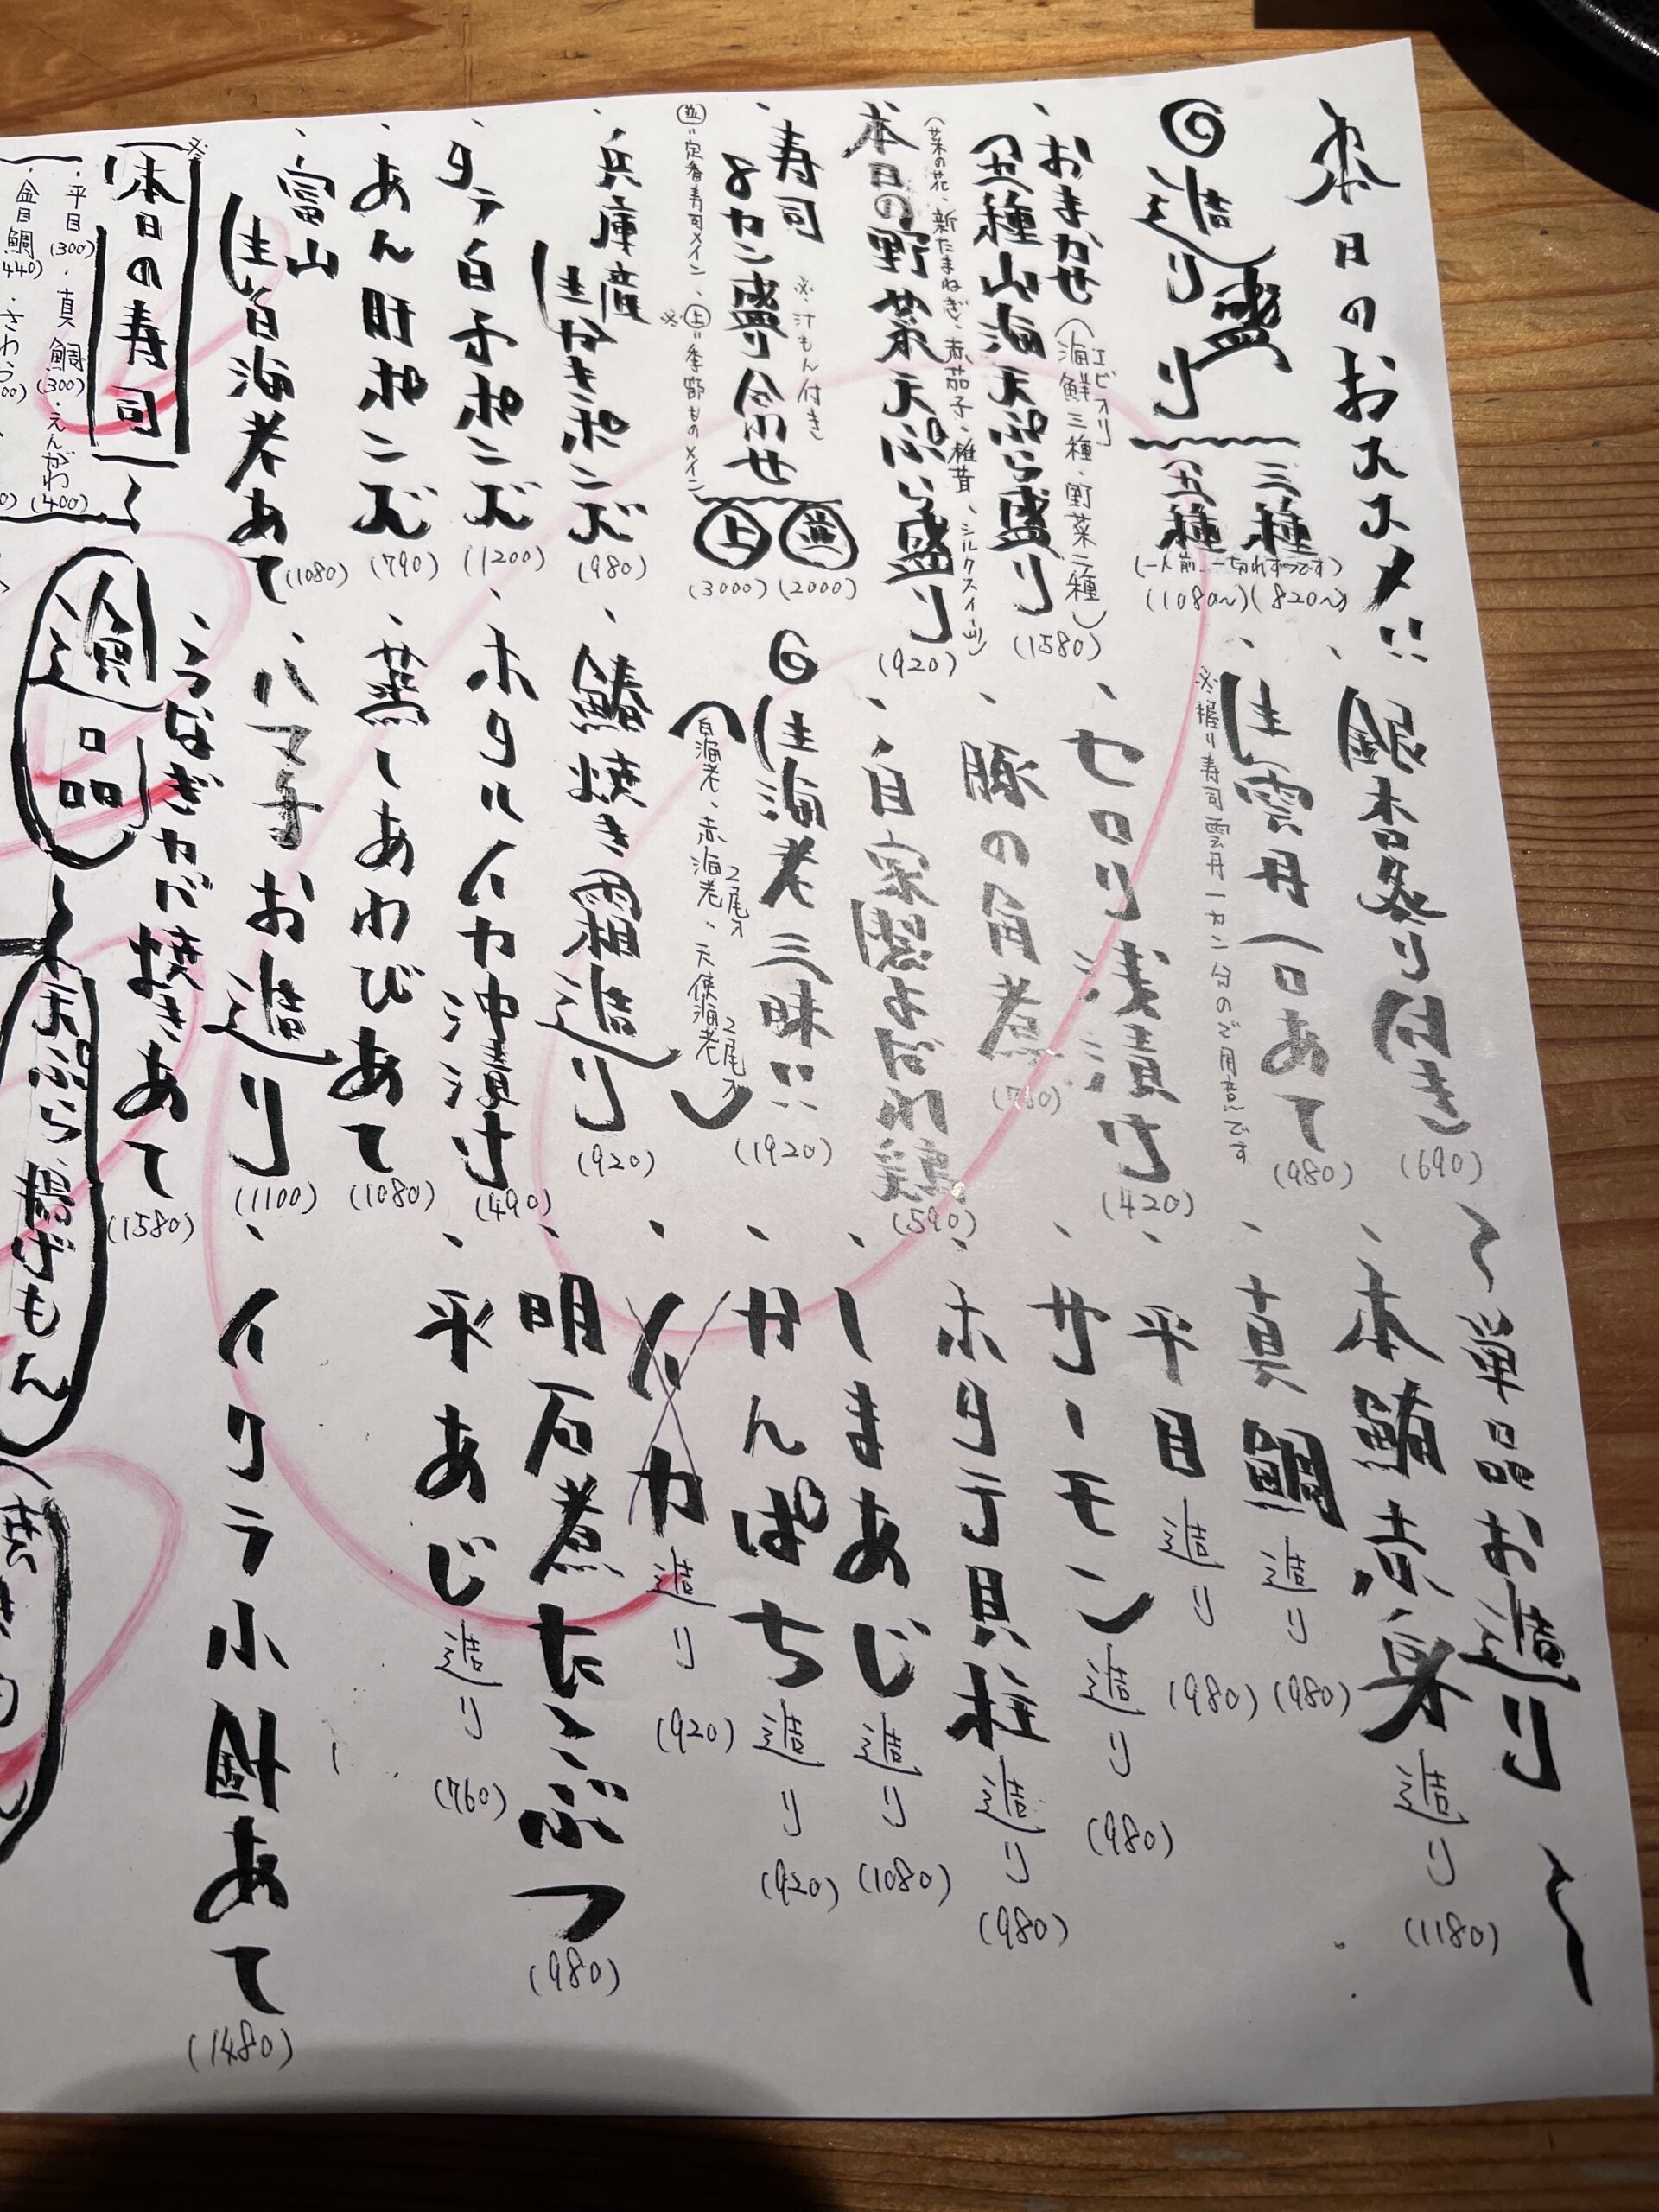 本日のおススメ!!
◎造り盛り
三種 (820〜)
五種 (1080〜)
(一人前、一切れずつです)
、おまかせ
五種山海天ぷら盛り (1580)
(海鮮三種・野菜二種)
エビ入り
本日の野菜天ぷら盛り (920)
(菜の花、新たまねぎ、赤茄子、椎茸、シルクスイーツ)
、寿司
8カン盛り合わせ
※汁もん付き
並 (2000)
上 (3000)
並=定番寿司メイン、上=季節ものメイン
※
、兵庫産
生かきポン酢 (980)
、タラ白子ポン酢 (1200)
、あん肝ポン酢 (790)
、富山
生白海老あて (1080)
、銀杏炙り焼き (690)
、生雲丹一口あて (980)
※握り寿司雲丹一カン分のご用意です
、セロリ浅漬け (420)
、豚の角煮 (780)
、自家製よだれ鶏 (590)
◎生海老三昧!! (1920)
(白海老、赤海老2尾入、天使海老2尾入)
、鰆焼き霜造り (920)
、ホタルイカ沖漬け (490)
、蒸しあわびあて (1080)
、ハマチお造り (1100)
、うなぎカバ焼きあて (1580)
〜単品お造り〜
、本鮪赤身造り (1180)
、真鯛造り (980)
、平目造り (980)
、サーモン造り (980)
、ホタテ貝柱造り (980)
、しまあじ造り (1080)
、かんぱち造り (920)
、イカ造り (920)
、明石煮たこぶつ (980)
、平あじ造り (760)
、イクラ小鉢あて (1480)
※
本日の寿司
・平目 (300)・真鯛 (300)・えんがわ (400)
・金目鯛 (440)・さわら
逸品
天ぷら、揚げもん